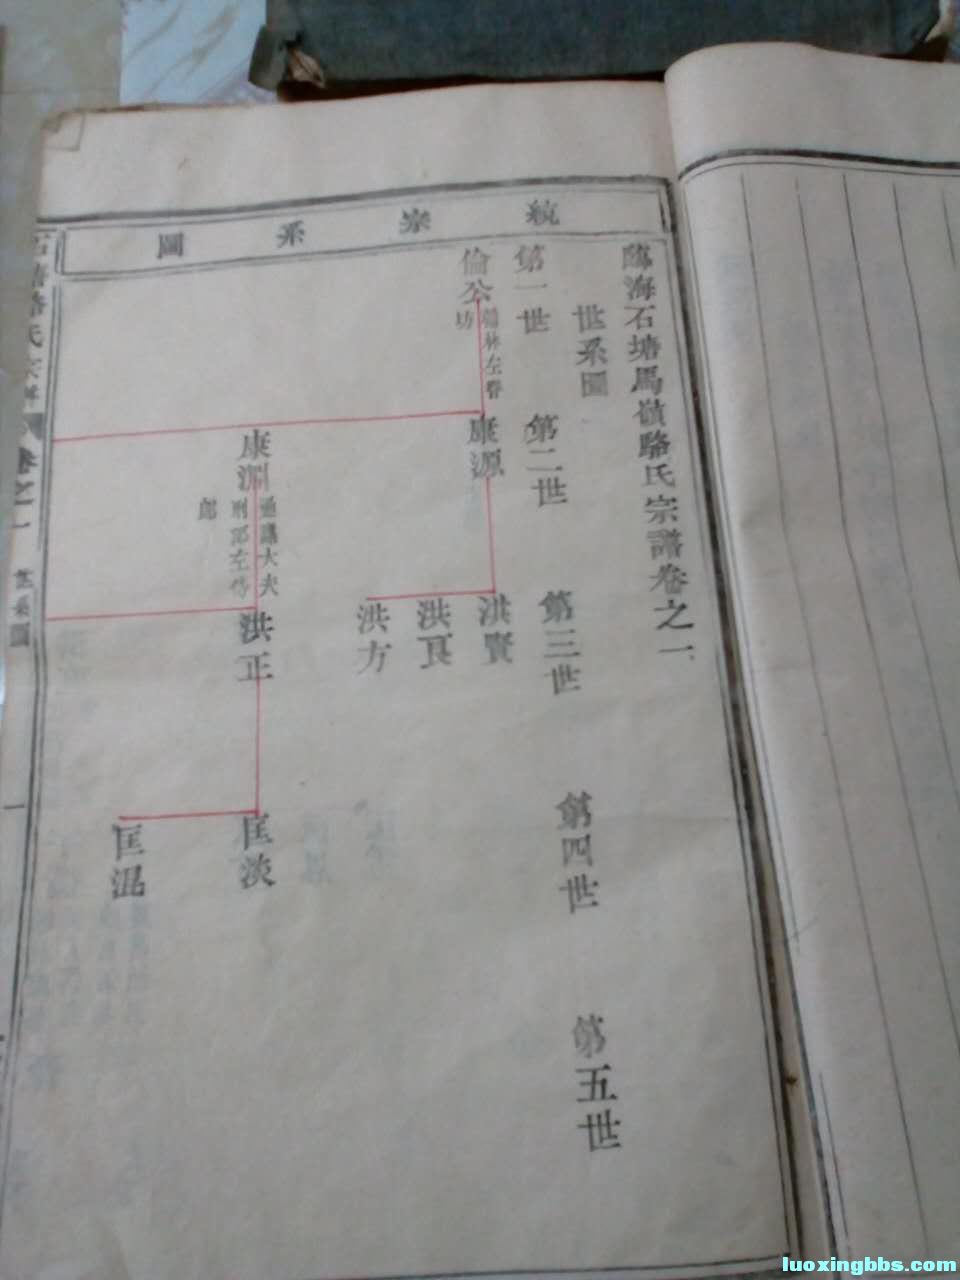 統宗系圖
臨海石塘馬嶺駱氏宗譜卷之一
世系圖
第一世
第二世
第三世
第四世
第五世
倫公
林左春
坊
康源
洪賢
洪良
洪方
康淵
通議大夫
刑部左侍
郎
洪正
匡淡
匡混
石塘駱氏宗譜
卷之一
世系圖
一
luoxingbbs.com